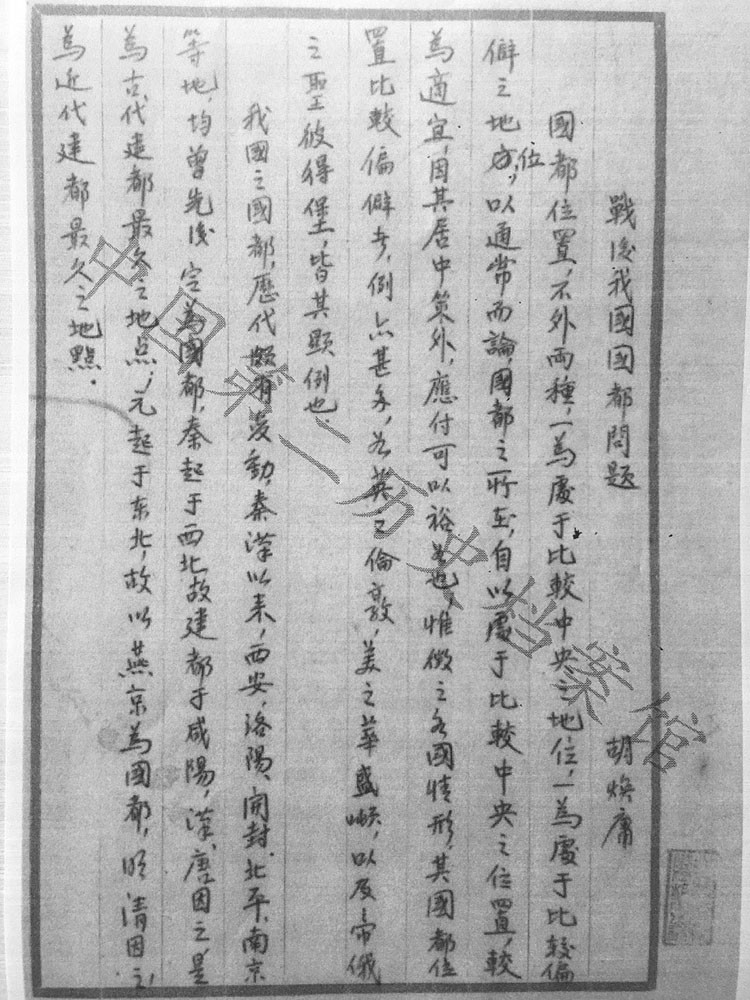 戰後我國國都問題 胡煥庸
國都位置,不外兩種,一為處于比較中央之地位,一為處于比較偏
僻之地方位,以通常而論,國都之所在,自以處于比較中央之位置,較
為適宜,因其居中策外,應付可以裕如也,惟徵之各國情形,其國都位
置比較偏僻者,例亦甚多,如英之倫敦,美之華盛頓,以及帝俄
之聖彼得堡,皆其顯例也.
我國之國都,歷代頗有變動,秦漢以来,西安、洛陽、開封、北平、南京
等地,均曾先後定為國都,秦起于西北故建都于咸陽,漢、唐因之,是
為古代建都最久之地点,元起于东北,故以燕京為國都,明清因之,
為近代建都最久之地點.
中国第二历史档案馆